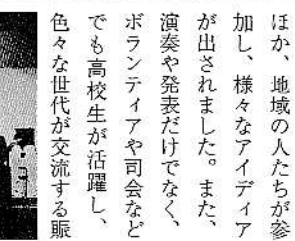 ほか、地域の人たちが参
加し、様々なアイディア
が出されました。また、
演奏や発表だけでなく、
ボランティアや司会など
でも高校生が活躍し、
色々な世代が交流する賑